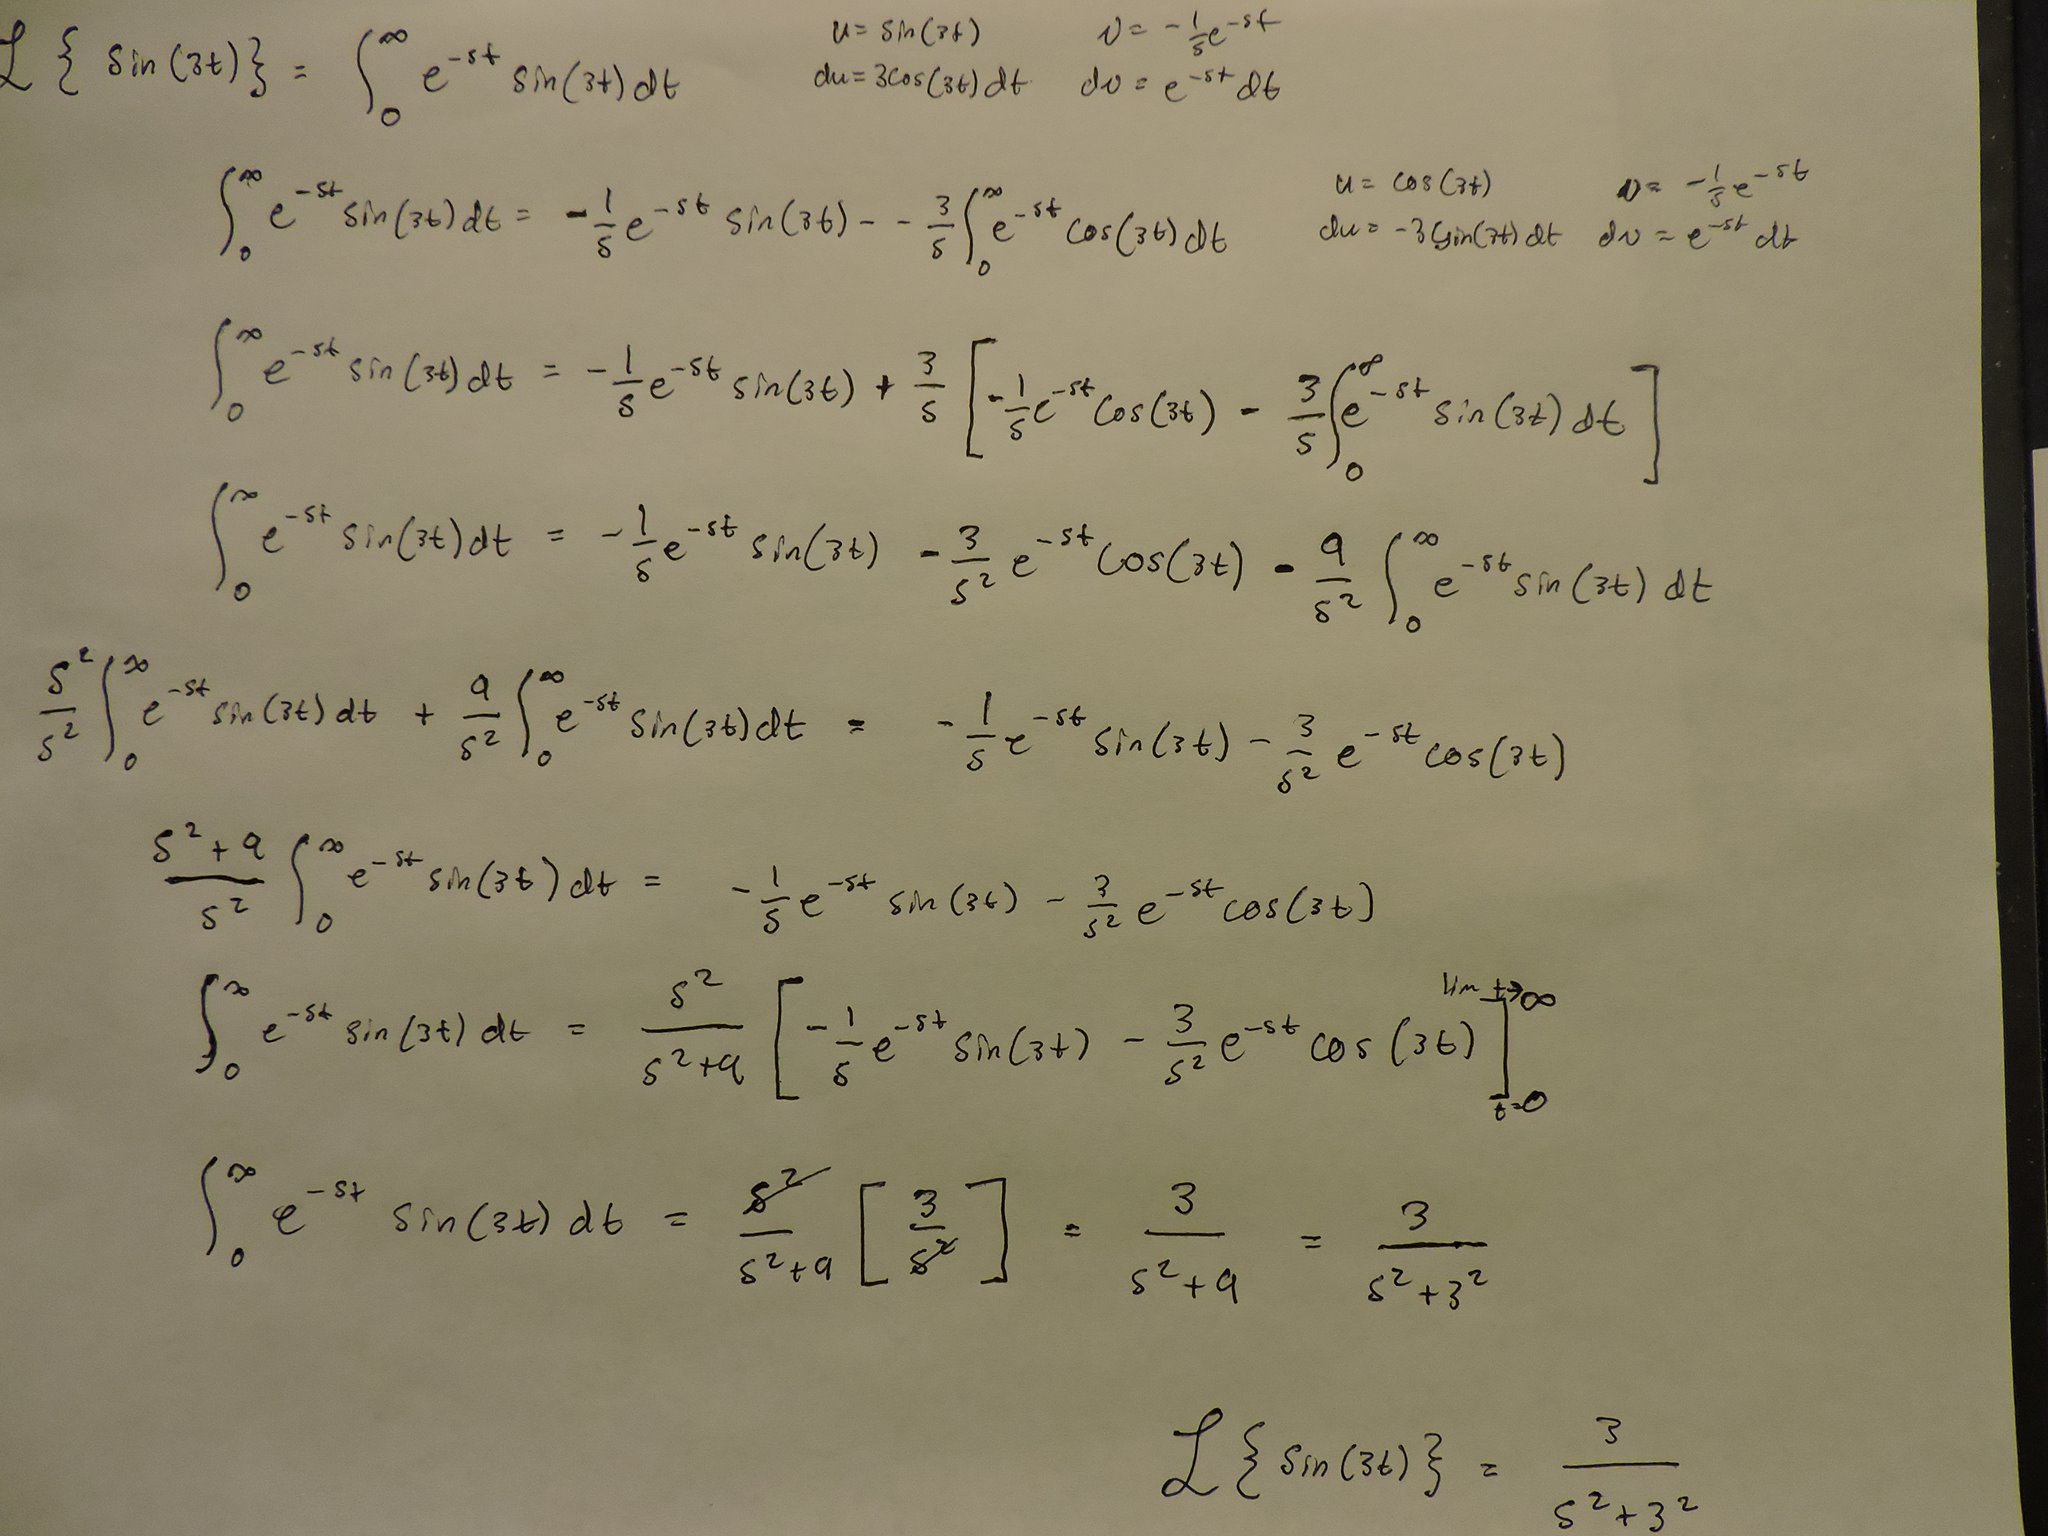 ℒ{sin(3t)} = ∫₀^∞ e^(-st) sin(3t) dt    u = sin(3t)    v = -1/s e^(-st)
du = 3cos(3t) dt    dv = e^(-st) dt
∫₀^∞ e^(-st) sin(3t) dt = -1/s e^(-st) sin(3t) - - 3/s ∫₀^∞ e^(-st) cos(3t) dt    u = cos(3t)    v = -1/s e^(-st)
du = -3sin(3t) dt    dv = e^(-st) dt
∫₀^∞ e^(-st) sin(3t) dt = -1/s e^(-st) sin(3t) + 3/s [-1/s e^(-st) cos(3t) - 3/s ∫₀^∞ e^(-st) sin(3t) dt]
∫₀^∞ e^(-st) sin(3t) dt = -1/s e^(-st) sin(3t) - 3/s² e^(-st) cos(3t) - 9/s² ∫₀^∞ e^(-st) sin(3t) dt
s²/s² ∫₀^∞ e^(-st) sin(3t) dt + 9/s² ∫₀^∞ e^(-st) sin(3t) dt = -1/s e^(-st) sin(3t) - 3/s² e^(-st) cos(3t)
(s²+9)/s² ∫₀^∞ e^(-st) sin(3t) dt = -1/s e^(-st) sin(3t) - 3/s² e^(-st) cos(3t)
∫₀^∞ e^(-st) sin(3t) dt = s²/(s²+9) [-1/s e^(-st) sin(3t) - 3/s² e^(-st) cos(3t)]_(t=0)^(lim t→∞)
∫₀^∞ e^(-st) sin(3t) dt = s²/(s²+9) [3/s²] = 3/(s²+9) = 3/(s²+3²)
ℒ{sin(3t)} = 3/(s²+3²)